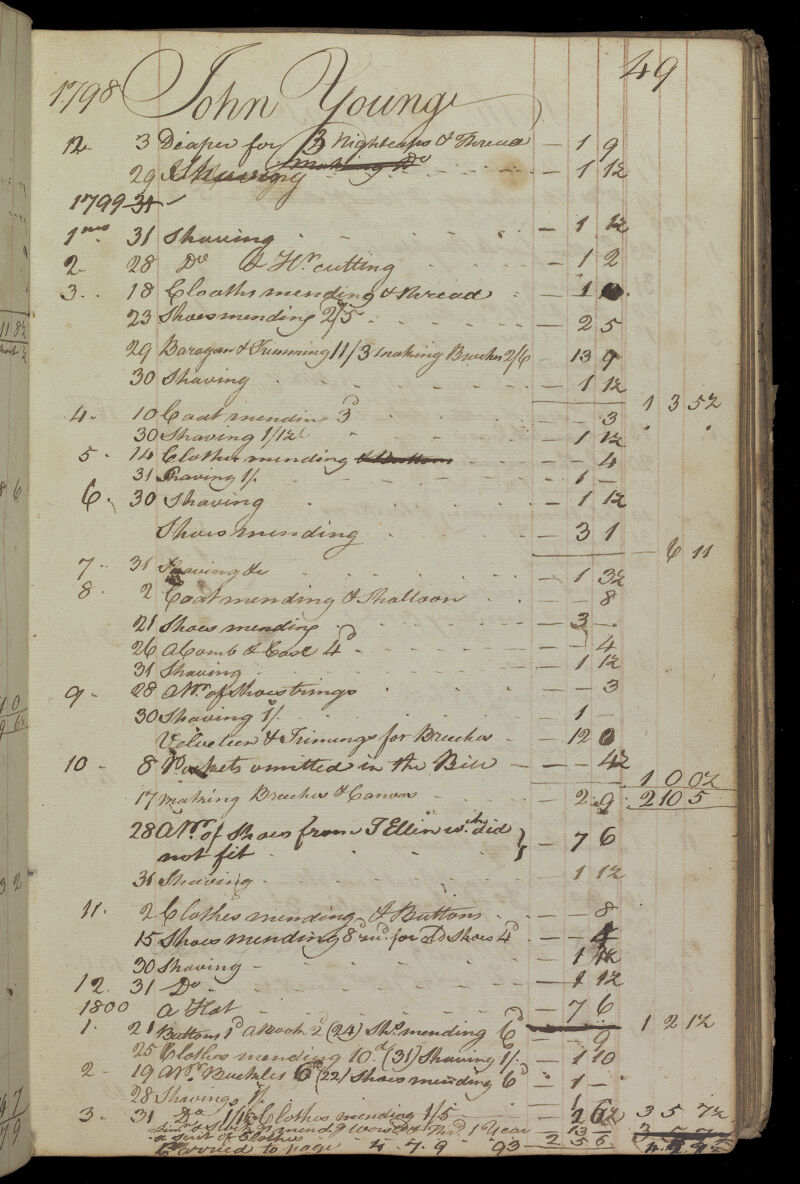 49
1798 John Young
12 3 Diaper for 3 Nightcaps & Thread — 1 9
making Do
29 Shaving — 1 1½
1799 31
1mo 31 Shaving — 1 1½
2 28 Do & Hr cutting — 1 2
3 18 Cloaths mending & thread — 1
23 Shoes mending 2/5 — 2 5
29 Baragon & Trimming 11/3 making Breeches 2/6 — 13 9
30 Shaving — 1 1½
1 3 5½
4 10 Coat mending 3d — — 3
30 Shaving 1/1½ — 1 1½
5 14 Clothes mending & Buttons — — 4
31 Shaving 1/. — 1 —
6 30 Shaving — 1 1½
Shoes mending — 3 1
— 6 11
7 31 Shaving &c — 1 3½
8 2 Coat mending & Shalloon — — 8
21 Shoes mending — 3 —
26 a Comb & Case 4d — — 4
31 Shaving — 1 1½
9 28 a Pr. of Shoestrings — — 3
30 Shaving 1/. — 1 —
Velveteen & Trimings for Breeches — 12 0
10 8 Pockets omitted in the Bill — — 4½
1 0 0½
17 making Breeches & Canvas — 2 9 2 10 5
28 a Pr. of Shoes from J Ellin wch. did
not fit } — 7 6
31 Shaving — 1 1½
11 2 Clothes mending & Buttons — — 8
15 Shoes mending 8d rd. for old Shoes 4d — — 4
30 Shaving — 1 1½
12 31 Do — 1 1½
1800 a Hat — 7 6
1 2 1½
1 21 Buttons 1d a Book 2d (24) Shs. mending 6d — — 9
25 Clothes mending 10d (31) Shaving 1/. — 1 10
2 19 a Pr. Buckles 6d (22) Shoes mending 6d — 1 —
28 Shaving 1/. — 1
3 31 Do 1/1½ Clothes mending 1/5 — 2 6½ 3 5 7½
mendg worsted 1 Year — 13 —
a Suit of Clothes 2 5 6
Carried to page 4.7.9 93